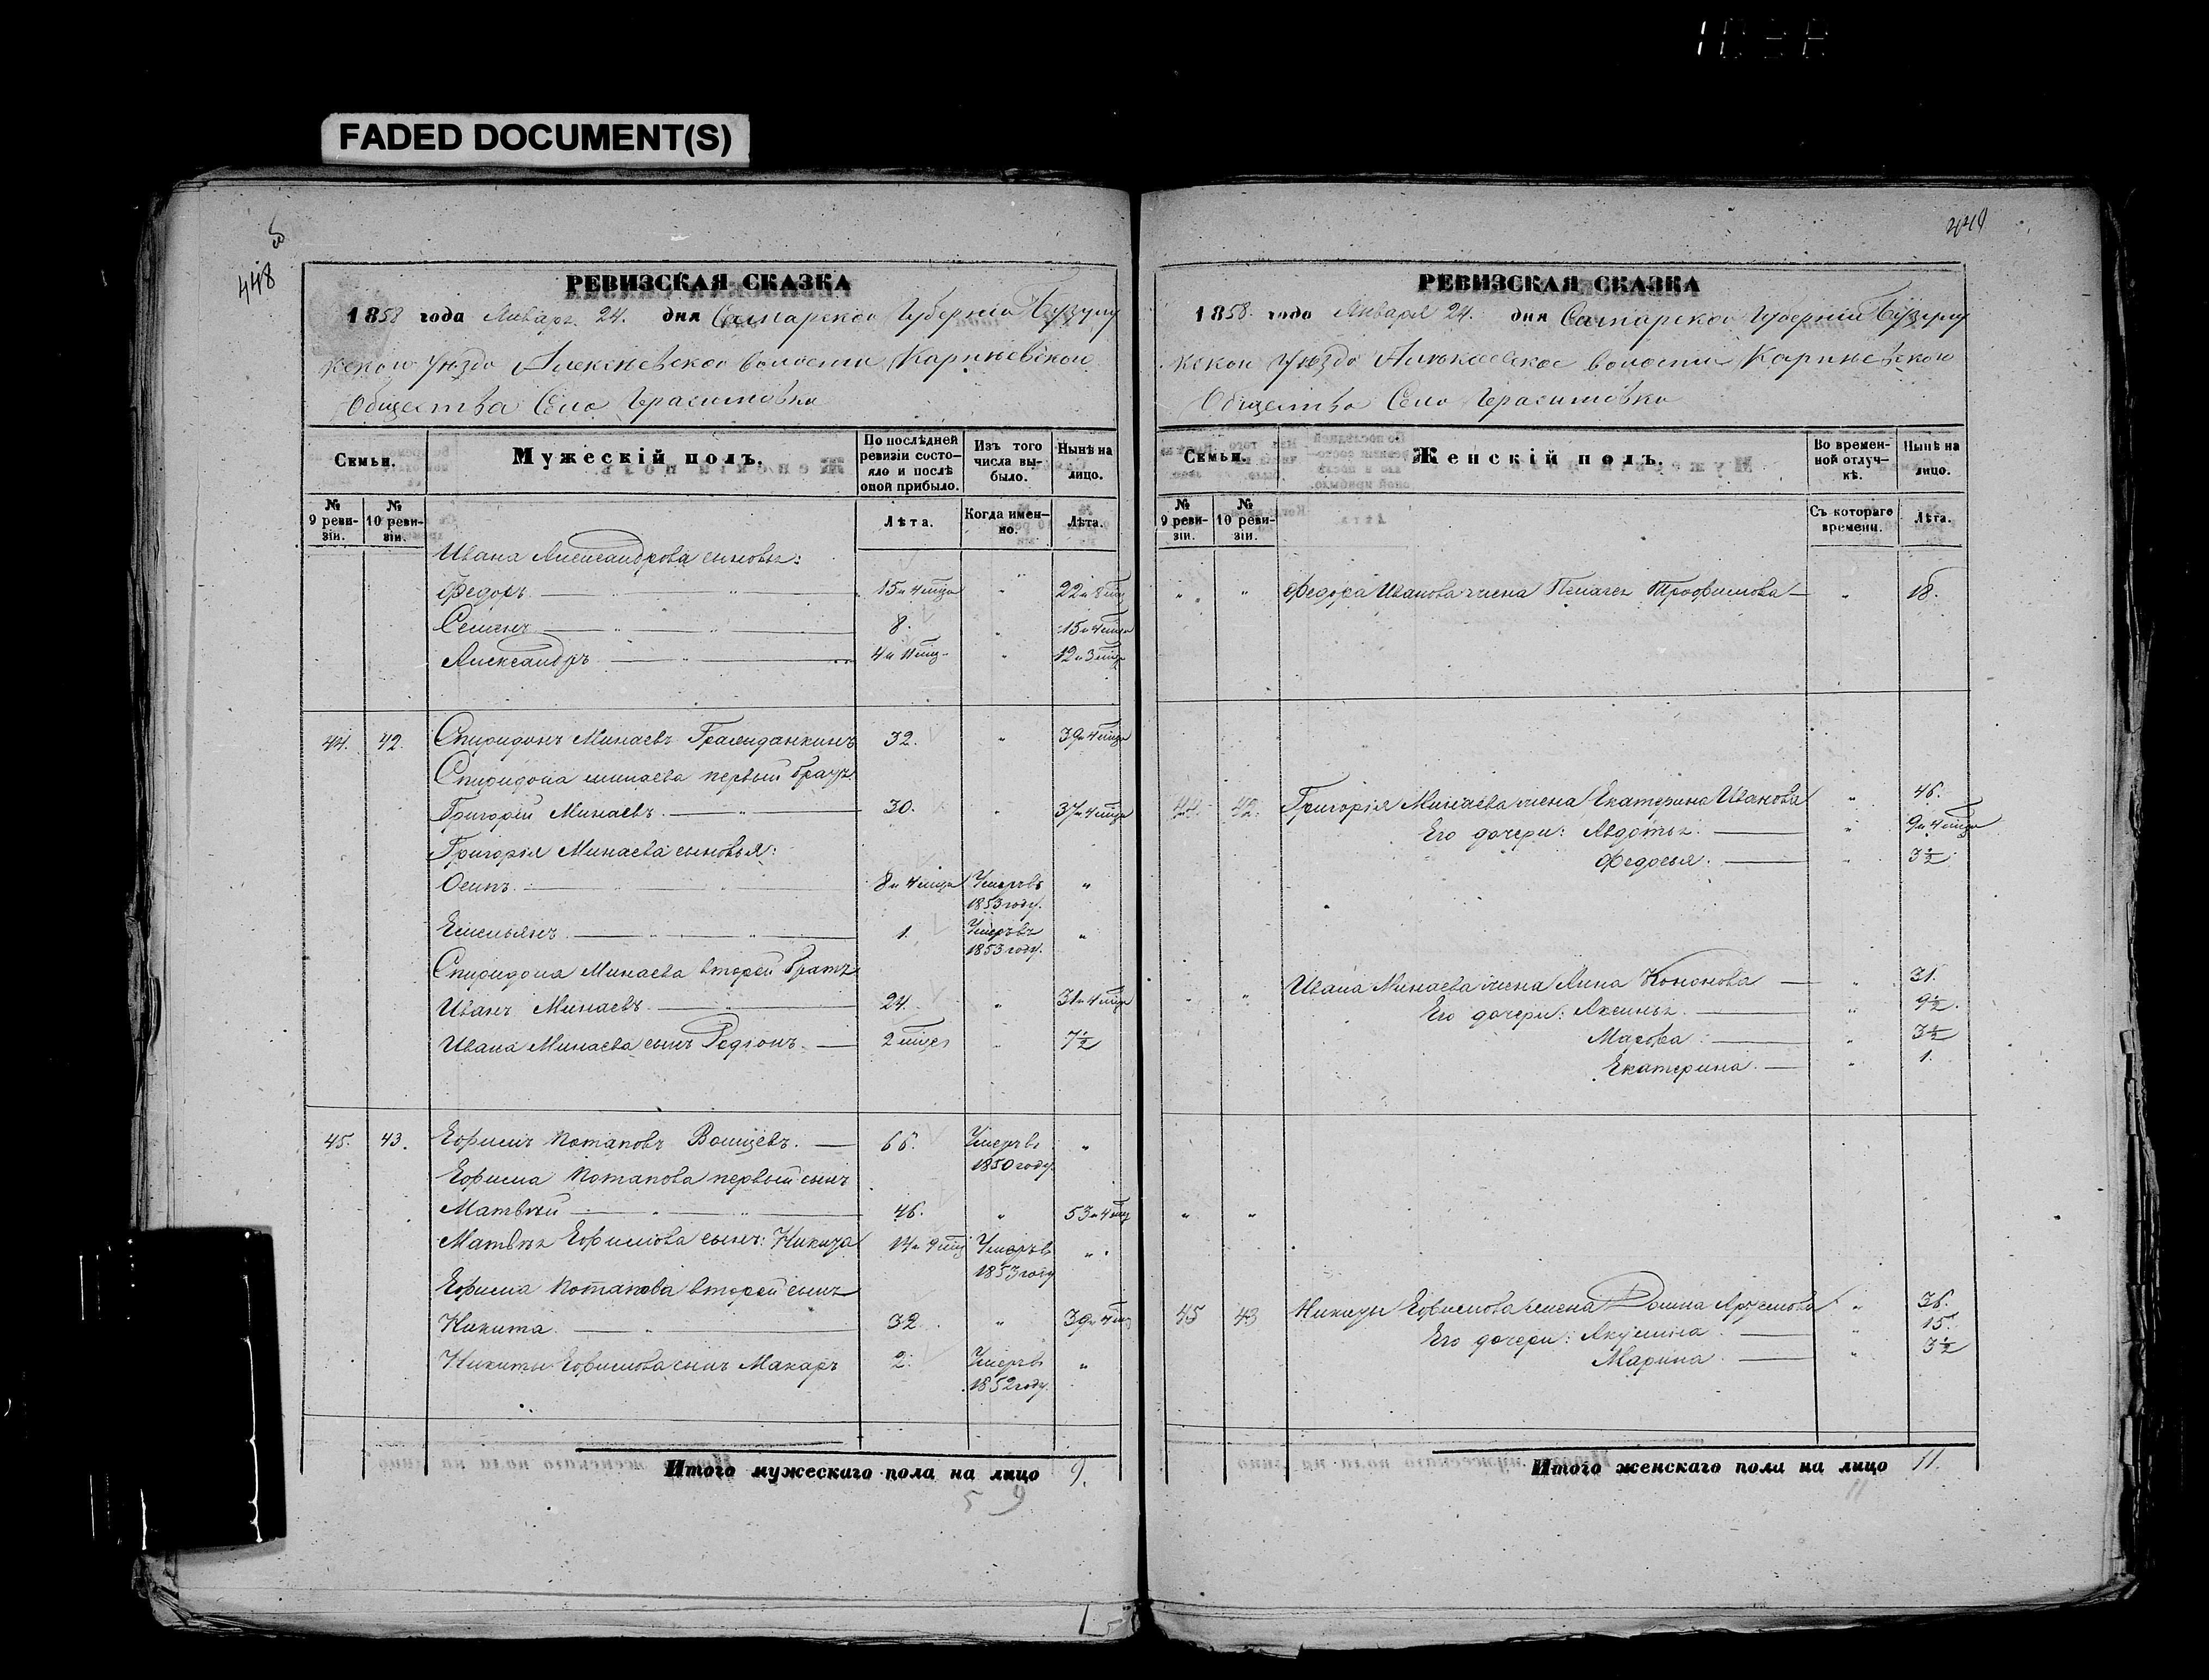 FADED DOCUMENT(S)
448
РЕВИЗСКАЯ СКАЗКА
1858 года Января 24. дня Самарской Губерніи Бузулу
кскаго Уѣзда Алексѣевской волости Карпѣевскаго
Общества Село Герасимовка
Семьи.
Мужескій полъ.
По послѣдней ревизіи состояло и послѣ оной прибыло.
Изъ того числа выбыло.
Нынѣ на лицо.
№ 9 ревизіи.
№ 10 ревизіи.
Лѣта.
Когда именно.
Лѣта.
Ивана Александрова сыновья:
Федоръ 15 и 4 мѣца " 22 и 8 мѣц
Семенъ 8. " 15 и 4 мѣца
Александръ 4 и 11 мѣц. " 12 и 3 мѣц
44. 42. Спиридонъ Минаевъ 32. " 39 и 4 мѣца
Спиридона Минаева первый братъ
Григорій Минаевъ. 30. " 37 и 4 мѣца
Григорія Минаева сыновья:
Осипъ. 8 и 4 мѣца Умеръ въ 1853 году. "
Емельянъ 1. Умеръ въ 1853 году. "
Спиридона Минаева второй братъ
Иванъ Минаевъ. 24. " 31 и 4 мѣца
Ивана Минаева сынъ Родіонъ. 2 мѣцъ " 7½
45. 43. Ефимъ Потаповъ 66. Умеръ въ 1850 году "
Ефима Потапова первый сынъ
Матвѣй 46. " 53 и 4 мѣц
Матвѣя Ефимова сынъ: Никита 14 и 9 мѣц Умеръ въ 1853 году "
Ефима Потапова второй сынъ
Никита. 32. " 39 и 4 мѣц
Никиты Ефимова сынъ Макаръ 2. Умеръ въ 1852 году. "
Итого мужескаго пола на лицо 9.
5 9
449
РЕВИЗСКАЯ СКАЗКА
1858. года Января 24. дня Самарской Губерніи Бузулу
кскаго Уѣзда Алексѣевской волости Карпѣевскаго
Общества Село Герасимовка
Семьи.
Женскій полъ.
Во временной отлучкѣ.
Нынѣ на лицо.
№ 9 ревизіи.
№ 10 ревизіи.
Съ котораго времени.
Лѣта.
" " Федора Иванова жена Пелагея Трофимова " 18.
44. 42. Григорія Минаева жена Екатерина Иванова " 46.
Его дочери: Авдотья. " 9 и 4 мѣца
Федосья. " 3½
" " Ивана Минаева жена Анна Кононова " 31.
Его дочери: Аксинья. " 9½.
Марфа " 3½
Екатерина. " 1.
" "
45 43 Никиты Ефимова жена Домна Артемова " 36.
Его дочери: Акулина. " 15.
Марина. " 3½
Итого женскаго пола на лицо 11.
11